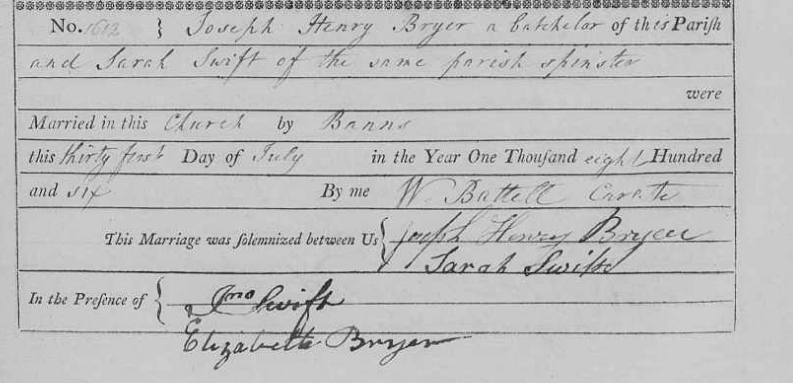 No. 1612 } Joseph Henry Bryer a batchelor of this Pariſh
and Sarah Swift of the same parish spinster
were
Married in this Church by Banns
this thirty first Day of July in the Year One Thouſand eight Hundred
and six By me W. Battell Curate
This Marriage was ſolemnized between Us { Joseph Henry Bryer
Sarah Swift
In the Preſence of { Jno Swift
Elizabeth Bryer